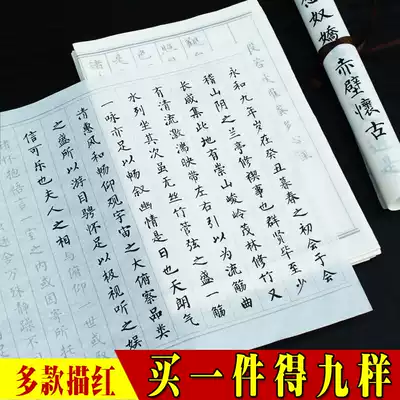 奴嬌 赤壁懷古
永和九年岁在癸丑暮春之初会于会
稽山阴之兰亭修禊事也群贤毕至少
长咸集此地有崇山峻岭茂林修竹又
有清流激湍映带左右引以为流觞曲
水列坐其次虽无丝竹管弦之盛一觞
一咏亦足以畅叙幽情是日也天朗气
清惠风和畅仰观宇宙之大俯察品类
之盛所以游目骋怀足以极视听之娱
信可乐也夫人之相
多款描红
买一件得九样